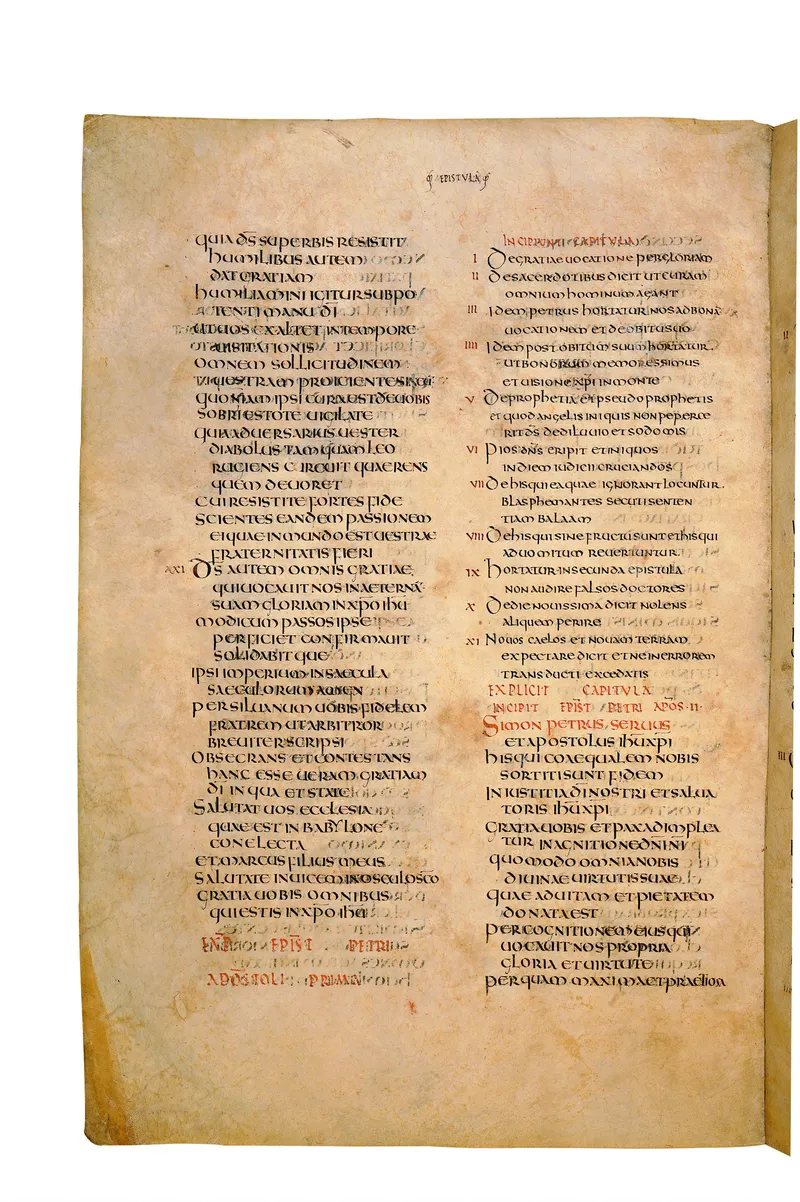 EPISTULA
QUIA D̄S SUPERBIS RESISTIT
HUMILIBUS AUTEM
DAT GRATIAM
HUMILIAMINI IGITUR SUB PO
TENTI MANU D̄I
UT UOS EXALTET IN TEMPORE
UISITATIONIS
OMNEM SOLLICITUDINEM
UESTRAM PROICIENTES IN
QUONIAM IPSI CURA EST DE UOBIS
SOBRII ESTOTE UIGILATE
QUIA ADUERSARIUS UESTER
DIABOLUS TAMQUAM LEO
RUGIENS CIRCUIT QUAERENS
QUEM DEUORET
CUI RESISTITE FORTES FIDE
SCIENTES EANDEM PASSIONEM
EI QUAE IN MUNDO EST UESTRAE
FRATERNITATIS FIERI
XXI D̄S AUTEM OMNIS GRATIAE
QUI UOCAUIT NOS IN AETERNĀ
SUAM GLORIAM IN XP̄O IH̄U
MODICUM PASSOS IPSE
PERFICIET CONFIRMAUIT
SOLIDABITQUE
IPSI IMPERIUM IN SAECULA
SAECULORUM AMEN
PER SILUANUM UOBIS FIDELEM
FRATREM UT ARBITROR
BREUITER SCRIPSI
OBSECRANS ET CONTESTANS
HANC ESSE UERAM GRATIAM
D̄I IN QUA ET STATE
SALUTAT UOS ECCLESIA
QUAE EST IN BABYLONE
CONELECTA
ET MARCUS FILIUS MEUS
SALUTATE INUICEM IN OSCULO SCO
GRATIA UOBIS OMNIBUS
QUI ESTIS IN XP̄O IH̄U
EPIST̄ PETRI
APOSTOLI PRIMA
INCIPIUNT CAPITULA
I DE GRATIAE UOCATIONE PER GLORIAM
II DE SACERDOTIBUS DICIT UT CURAM
OMNIUM HOMINUM AGANT
III IDEM PETRUS HORTATUR NOS AD BONA
UOCATIONEM ET DE OBITU SUO
IIII IDEM POST OBITUM SUUM HORTATUR
UT BONORUM MEMORES SIMUS
ET UISIONE XP̄I IN MONTE
V DE PROPHETIA EX PSEUDOPROPHETIS
ET QUOD ANGELIS INIQUIS NON PEPERCE
RIT D̄S DE DILUUIO ET SODOMIS
VI PIOS DN̄S ERIPIT ET INIQUOS
IN DIEM IUDICII CRUCIANDOS
VII DE HIS QUI EA QUAE IGNORANT LOCUNTUR
BLASPHEMANTES SECUTI SENTEN
TIAM BALAAM
VIII DE HIS QUI SINE FRUCTU SUNT ET HIS QUI
AD UOMITUM REUERTUNTUR
IX HORTATUR IN SECUNDA EPISTULA
NON AUDIRE FALSOS DOCTORES
X DE DIE NOUISSIMA DICIT NOLENS
ALIQUEM PERIRE
XI NOUOS CAELOS ET NOUAM TERRAM
EXPECTARE DICIT ET NE IN ERROREM
TRANSDUCTI EXCEDATIS
EXPLICIT CAPITULA
INCIPIT EPIST̄ PETRI APOS II
SIMON PETRUS SERUUS
ET APOSTOLUS IH̄U XP̄I
HIS QUI COAEQUALEM NOBIS
SORTITI SUNT FIDEM
IN IUSTITIA D̄I NOSTRI ET SALUA
TORIS IH̄U XP̄I
GRATIA UOBIS ET PAX ADIMPLEA
TUR IN AGNITIONE DN̄I N̄I
QUOMODO OMNIA NOBIS
DIUINAE UIRTUTIS SUAE
QUAE AD UITAM ET PIETATEM
DONATA EST
PER COGNITIONEM EIUS QUI
UOCAUIT NOS PROPRIA
GLORIA ET UIRTUTE
PER QUAM MAXIMA ET PRAETIOSA